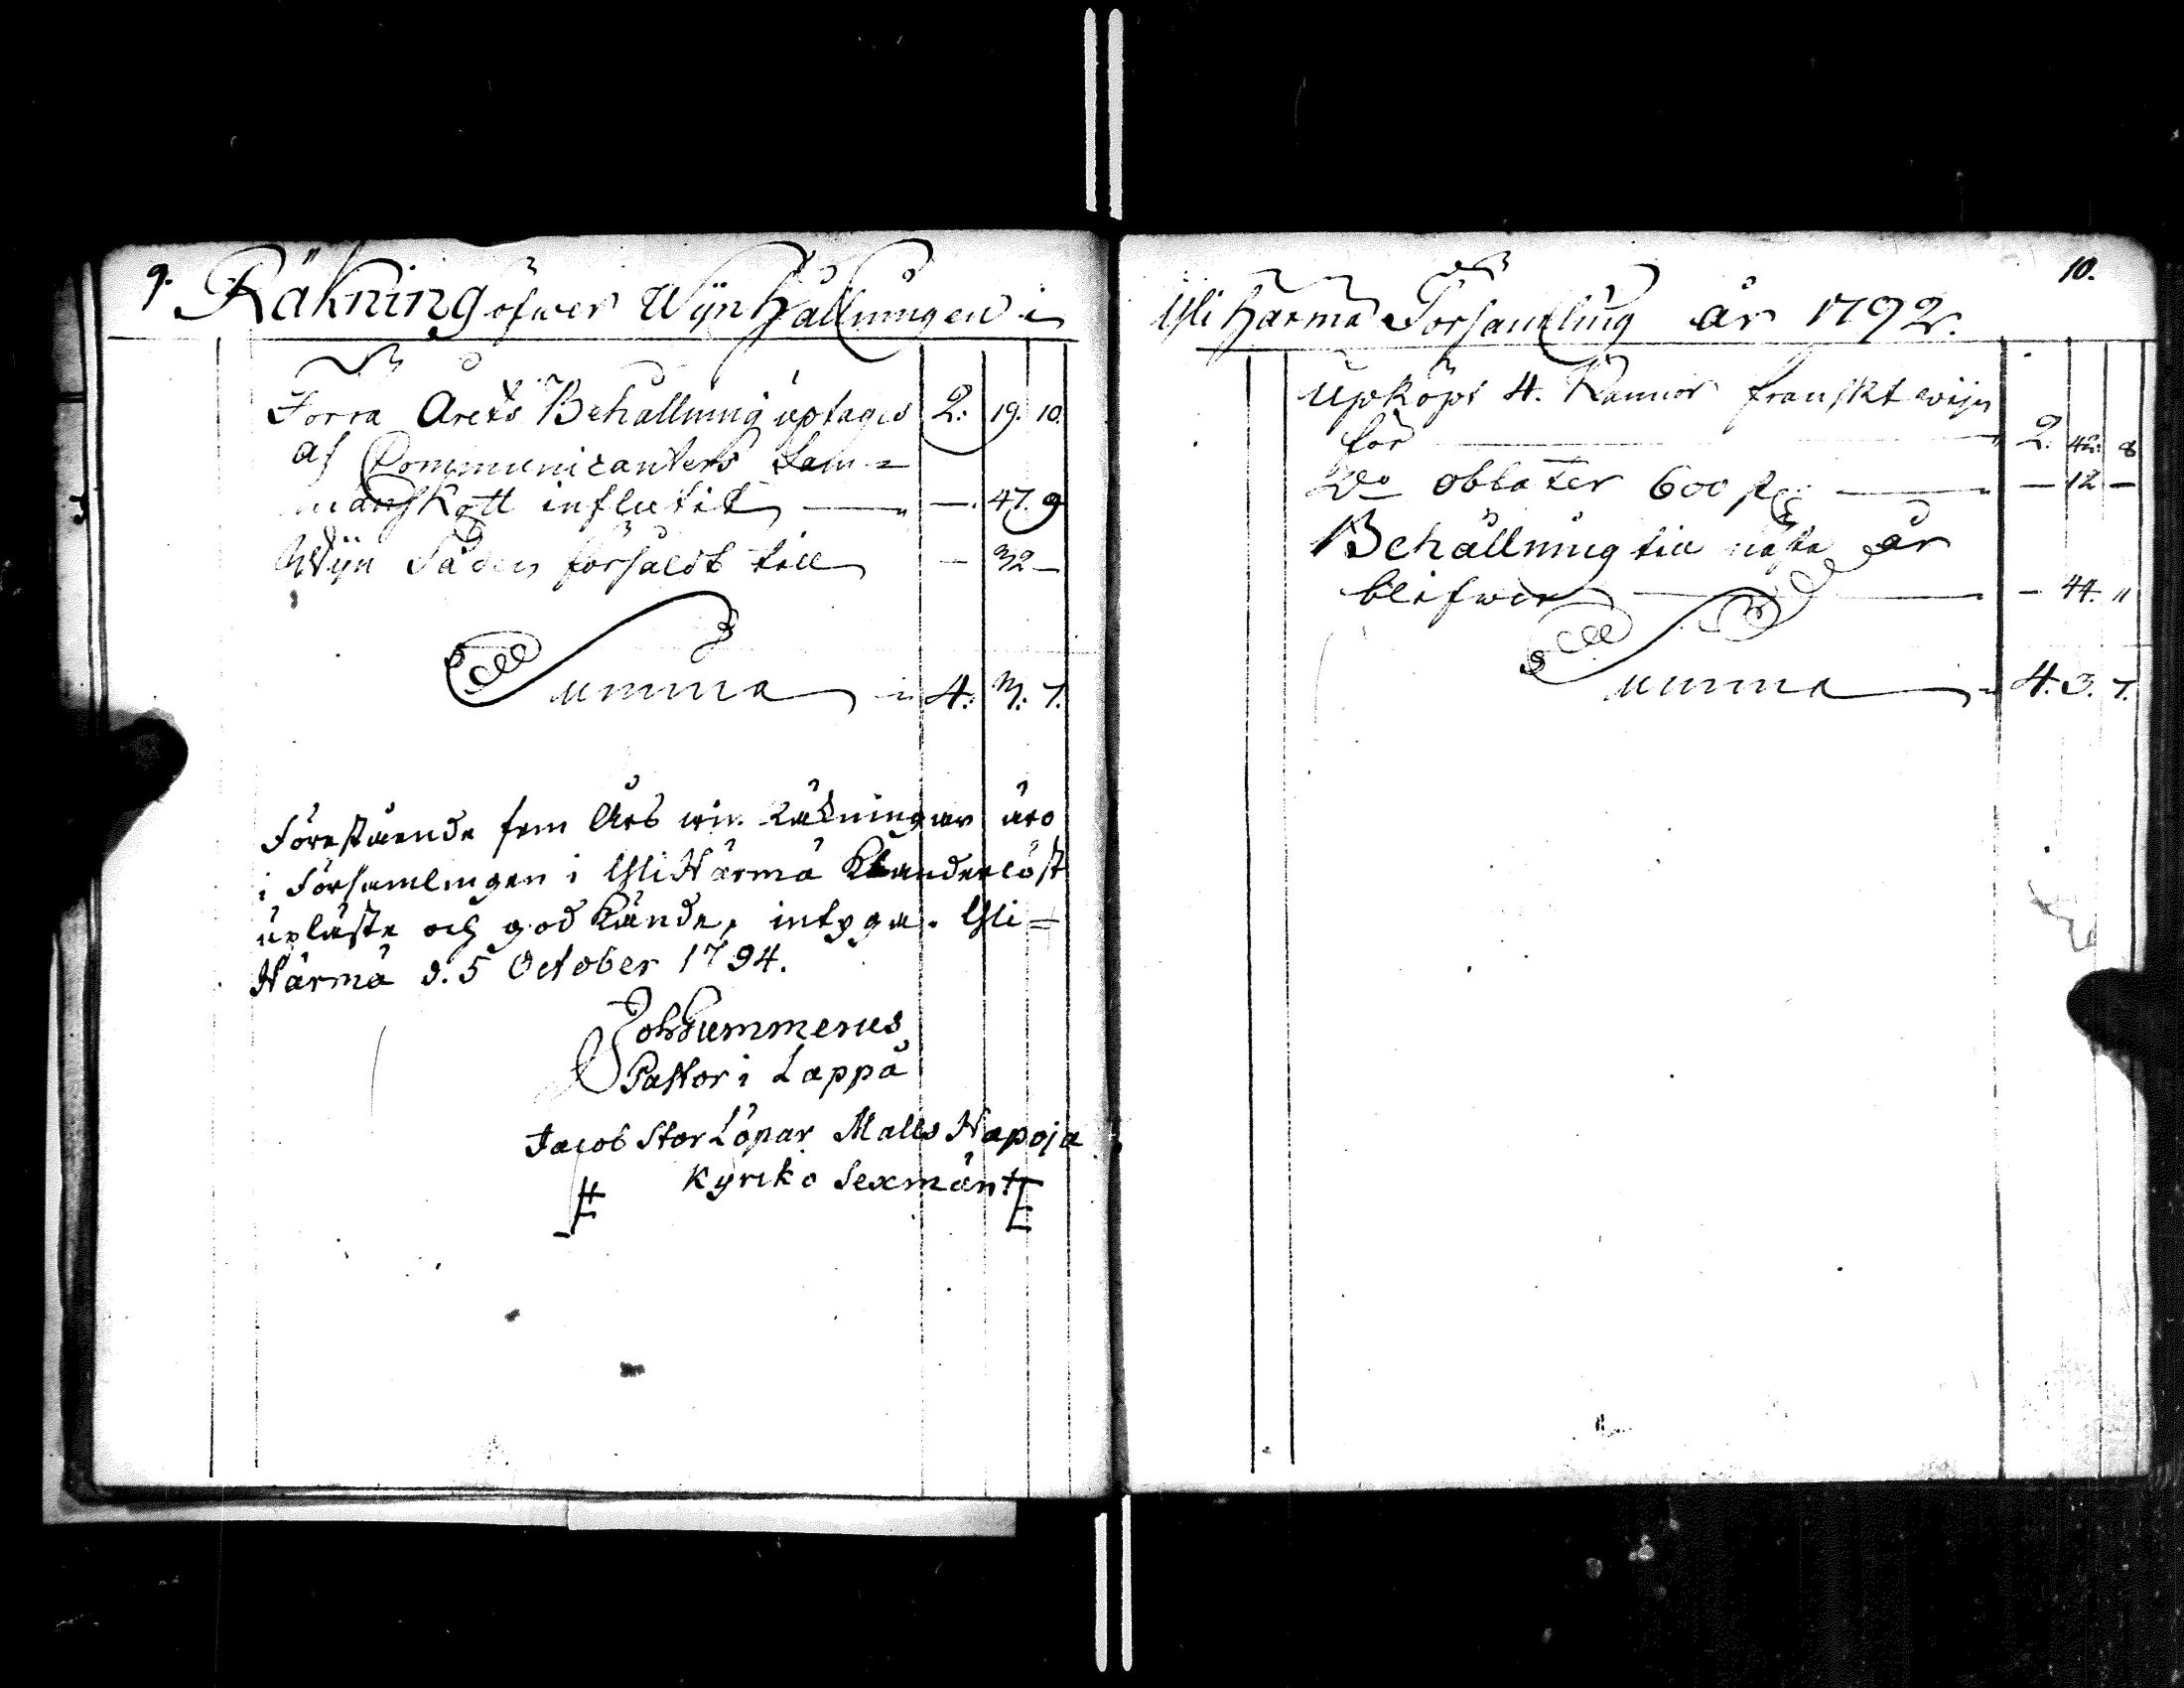 9.
Räkning öfwer Wijnhållningen i
Förra Årets Behållning uptages 2. 19. 10.
af Communicanters Sam=
manskott influtit — 47. 9
Wijn Säden försåldt till — 32 —
Summa 4. 3. 7.
Förestående fem Års win räkningar äro
i Församlingen i Ylihärmä Klanderlöst
upläste och god kände, intygar. Yli=
Härmä d. 5 October 1794.
Joh Summerus
Pastor i Lappå
Jacob Storlöpar Matts Hapoja
Kyrko Sexmän
10.
Ylihärmä Församling år 1792.
Upköpt 4. Kannor franskt wijn
för 2. 42. 8
Do oblater 600 st — 12 —
Behållning till nästa år
blifwer — 44. 11
Summa 4. 3. 7.